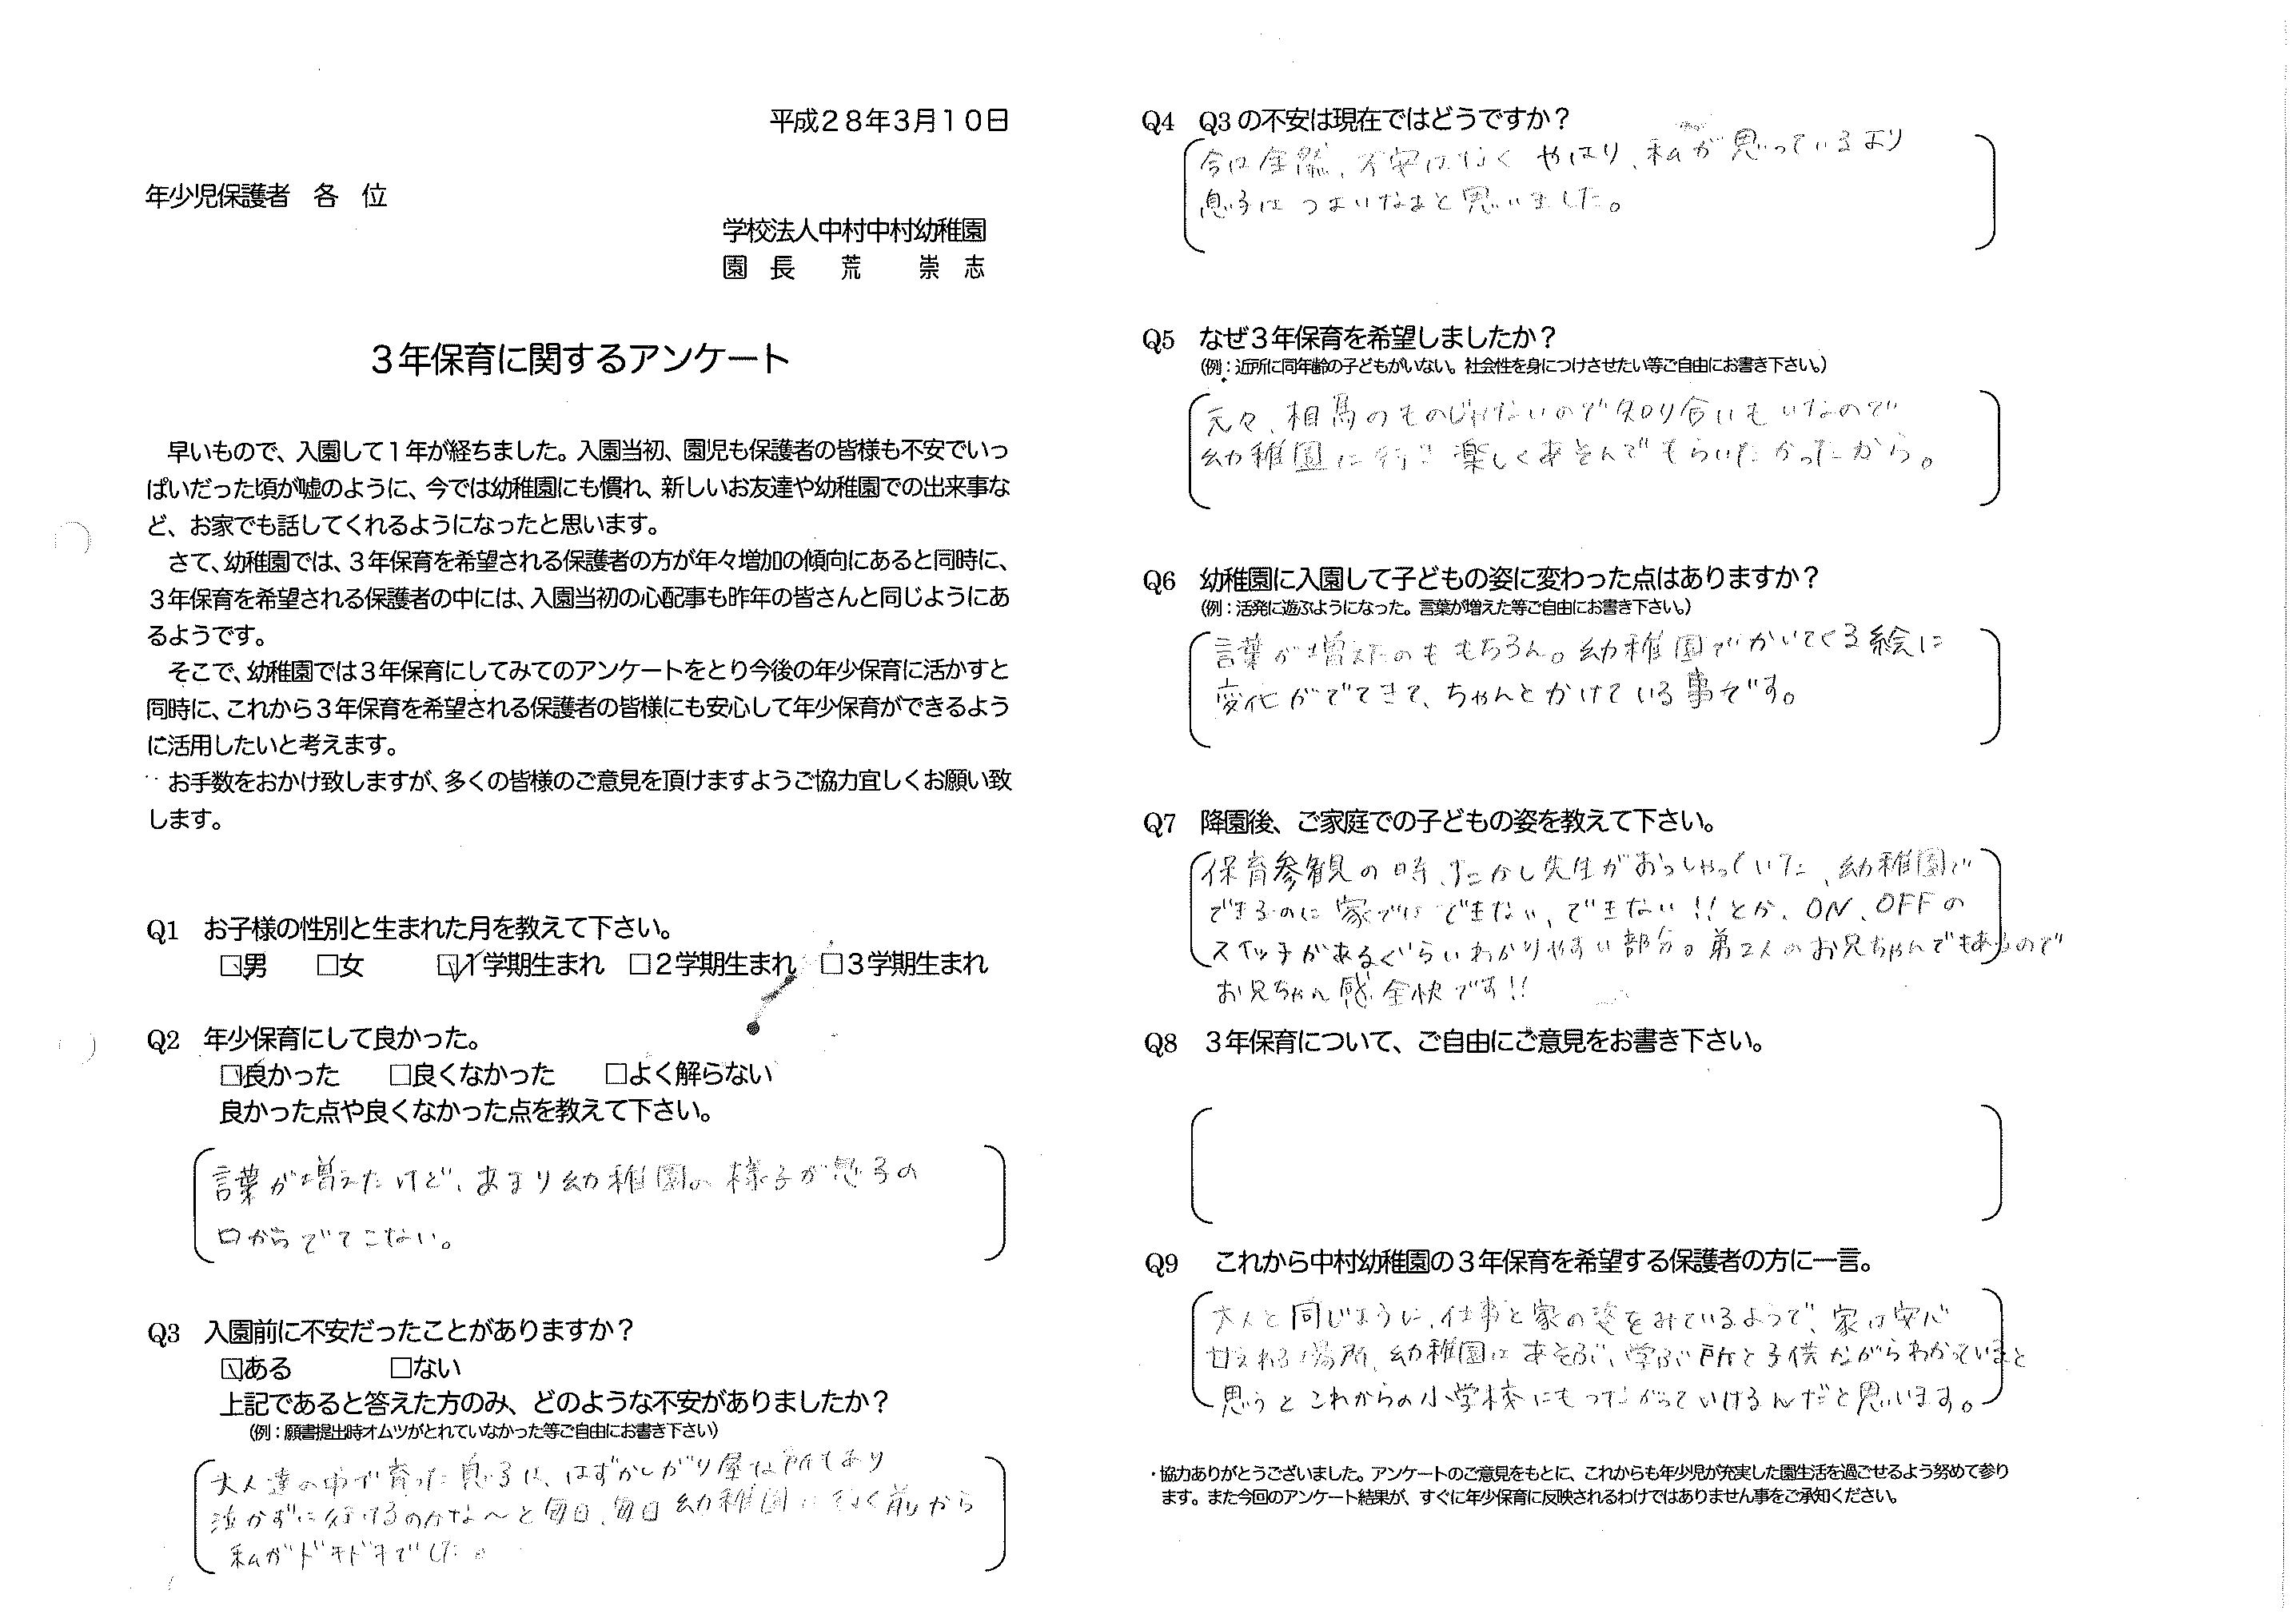 平成28年3月10日
年少児保護者　各　位
学校法人中村中村幼稚園
園　長　荒　崇　志
3年保育に関するアンケート
早いもので、入園して1年が経ちました。入園当初、園児も保護者の皆様も不安でいっ
ぱいだった頃が嘘のように、今では幼稚園にも慣れ、新しいお友達や幼稚園での出来事な
ど、お家でも話してくれるようになったと思います。
さて、幼稚園では、3年保育を希望される保護者の方が年々増加の傾向にあると同時に、
3年保育を希望される保護者の中には、入園当初の心配事も昨年の皆さんと同じようにあ
るようです。
そこで、幼稚園では3年保育にしてみてのアンケートをとり今後の年少保育に活かすと
同時に、これから3年保育を希望される保護者の皆様にも安心して年少保育ができるよう
に活用したいと考えます。
お手数をおかけ致しますが、多くの皆様のご意見を頂けますようご協力宜しくお願い致
します。
Q1　お子様の性別と生まれた月を教えて下さい。
☑男　□女　☑1学期生まれ　□2学期生まれ　□3学期生まれ
Q2　年少保育にして良かった。
☑良かった　□良くなかった　□よく解らない
良かった点や良くなかった点を教えて下さい。
言葉が増えたけど、あまり幼稚園の様子が息子の
口からでてこない。
Q3　入園前に不安だったことがありますか？
☑ある　□ない
上記であると答えた方のみ、どのような不安がありましたか？
（例：願書提出時オムツがとれていなかった等ご自由にお書き下さい）
大人達の中で育った息子は、はずかしがり屋な所もあり
泣かずに行けるのかな～と毎日、毎日幼稚園に行く前から
私がドキドキでした。
Q4　Q3の不安は現在ではどうですか？
今は全然、不安はなくやはり、私が思っているより
息子はつよいなぁと思いました。
Q5　なぜ3年保育を希望しましたか？
（例：近所に同年齢の子どもがいない。社会性を身につけさせたい等ご自由にお書き下さい。）
元々、相馬のものじゃないので知り合いもいなので
幼稚園に行き楽しくあそんでもらいたかったから。
Q6　幼稚園に入園して子どもの姿に変わった点はありますか？
（例：活発に遊ぶようになった。言葉が増えた等ご自由にお書き下さい。）
言葉が増えたのももちろん。幼稚園でかいてくる絵に
変化がでてきて、ちゃんとかけている事です。
Q7　降園後、ご家庭での子どもの姿を教えて下さい。
保育参観の時、たかし先生がおっしゃっていた、幼稚園で
できるのに家ではできない、できない!!とか、ON、OFFの
スイッチがあるぐらいわかりやすい部分。弟2人のお兄ちゃんでもあるので
お兄ちゃん感全快です!!
Q8　3年保育について、ご自由にご意見をお書き下さい。
Q9　これから中村幼稚園の3年保育を希望する保護者の方に一言。
大人と同じように、仕事と家の姿をみているようで、家は安心
甘えれる場所、幼稚園はあそぶ、学ぶ所と子供ながらわかっていると
思うとこれからの小学校にもつながっていけるんだと思います。
・協力ありがとうございました。アンケートのご意見をもとに、これからも年少児が充実した園生活を過ごせるよう努めて参り
ます。また今回のアンケート結果が、すぐに年少保育に反映されるわけではありません事をご承知ください。